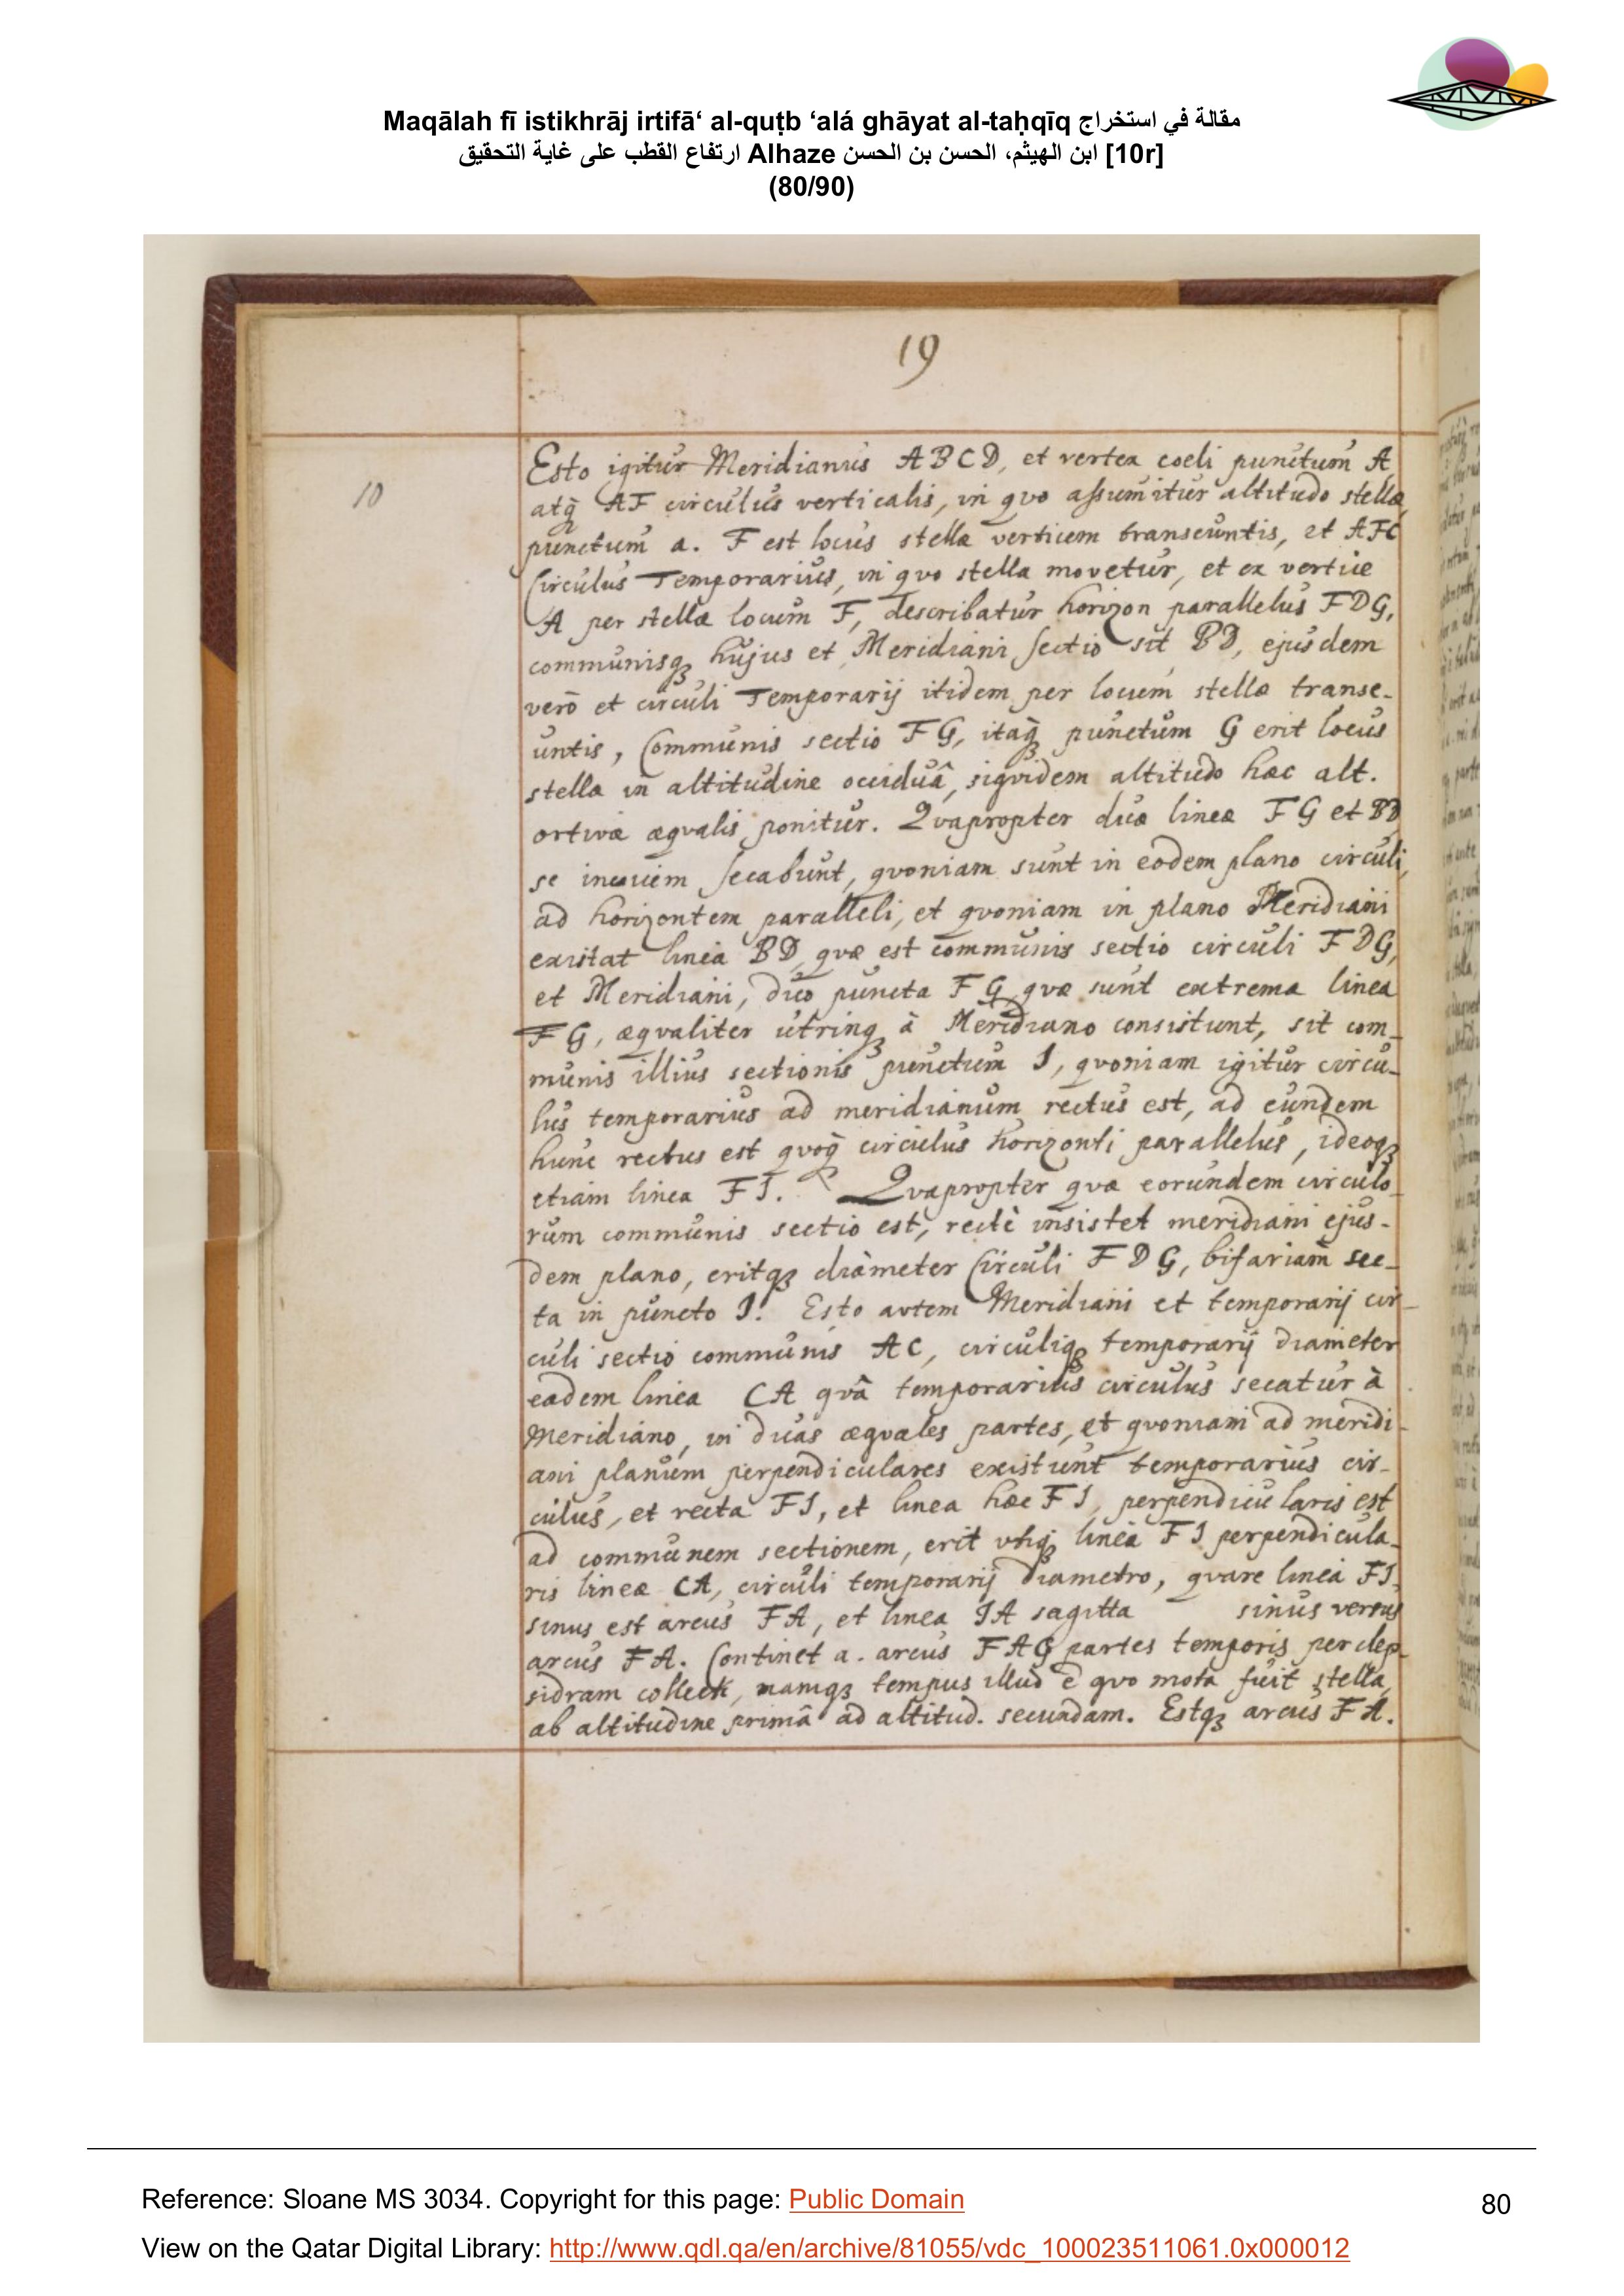 Maqālah fī istikhrāj irtifā‘ al-quṭb ‘alá ghāyat al-taḥqīq مقالة في استخراج
ارتفاع القطب على غاية التحقيق Alhaze ابن الهيثم، الحسن بن الحسن [10r]
(80/90)
19
10
Esto igitur Meridianus ABCD, et vertex coeli punctum A
atq̀ꝫ AF circulus verticalis, in quo assumitur altitudo stellæ,
punctum a. F est locus stellæ verticem transeuntis, et AFC
Circulus Temporarius, in quo stella movetur, et ex vertice
A per stellæ locum F, describatur horizon parallelus FDG,
communisqꝫ hujus et Meridiani Sectio sit BD, ejusdem
verò et circuli Temporarij itidem per locum stellæ transe-
untis, Communis sectio FG, itaq̀ꝫ punctum G erit locus
stellæ in altitudine occiduâ, siquidem altitudo hæc alt.
ortivæ æqualis ponitur. Quapropter duæ lineæ FG et BD
se invicem secabunt, quoniam sunt in eodem plano circuli,
ad horizontem paralleli, et quoniam in plano Meridiani
existat linea BD, quæ est communis sectio circuli FDG,
et Meridiani, duo puncta FG quæ sunt extrema linea
FG, æqualiter utrinqꝫ à Meridiano consistunt, sit com-
munis illius sectionis punctum I, quoniam igitur circu-
lus temporarius ad meridianum rectus est, ad eundem
hunc rectus est quoq̀ꝫ circulus horizonti parallelus, ideoqꝫ
etiam linea FI. Quapropter quæ eorundem circulo-
rum communis sectio est, rectè insistet meridiani ejus-
dem plano, eritqꝫ diàmeter Circuli FDG, bifariam sec-
ta in puncto I. Esto autem Meridiani et temporarij cir-
culi sectio communis AC, circuliqꝫ temporarij diameter
eadem linea CA quâ temporarius circulus secatur à
Meridiano, in duas æquales partes, et quoniam ad meridi-
ani planum perpendiculares existunt temporarius cir-
culus, et recta FI, et linea hæc FI, perpendicularis est
ad communem sectionem, erit utiqꝫ linea FI perpendicula-
ris lineæ CA, circuli temporarij diametro, quare linea FI
sinus est arcus FA, et linea IA sagitta sinus versus
arcus FA. Continet a. arcus FAG partes temporis per clep-
sidram collecti, namqꝫ tempus illud è quo mota fuit stella,
ab altitudine primâ ad altitud. secundam. Estqꝫ arcus FA.
Reference: Sloane MS 3034. Copyright for this page: Public Domain
80
View on the Qatar Digital Library: http://www.qdl.qa/en/archive/81055/vdc_100023511061.0x000012